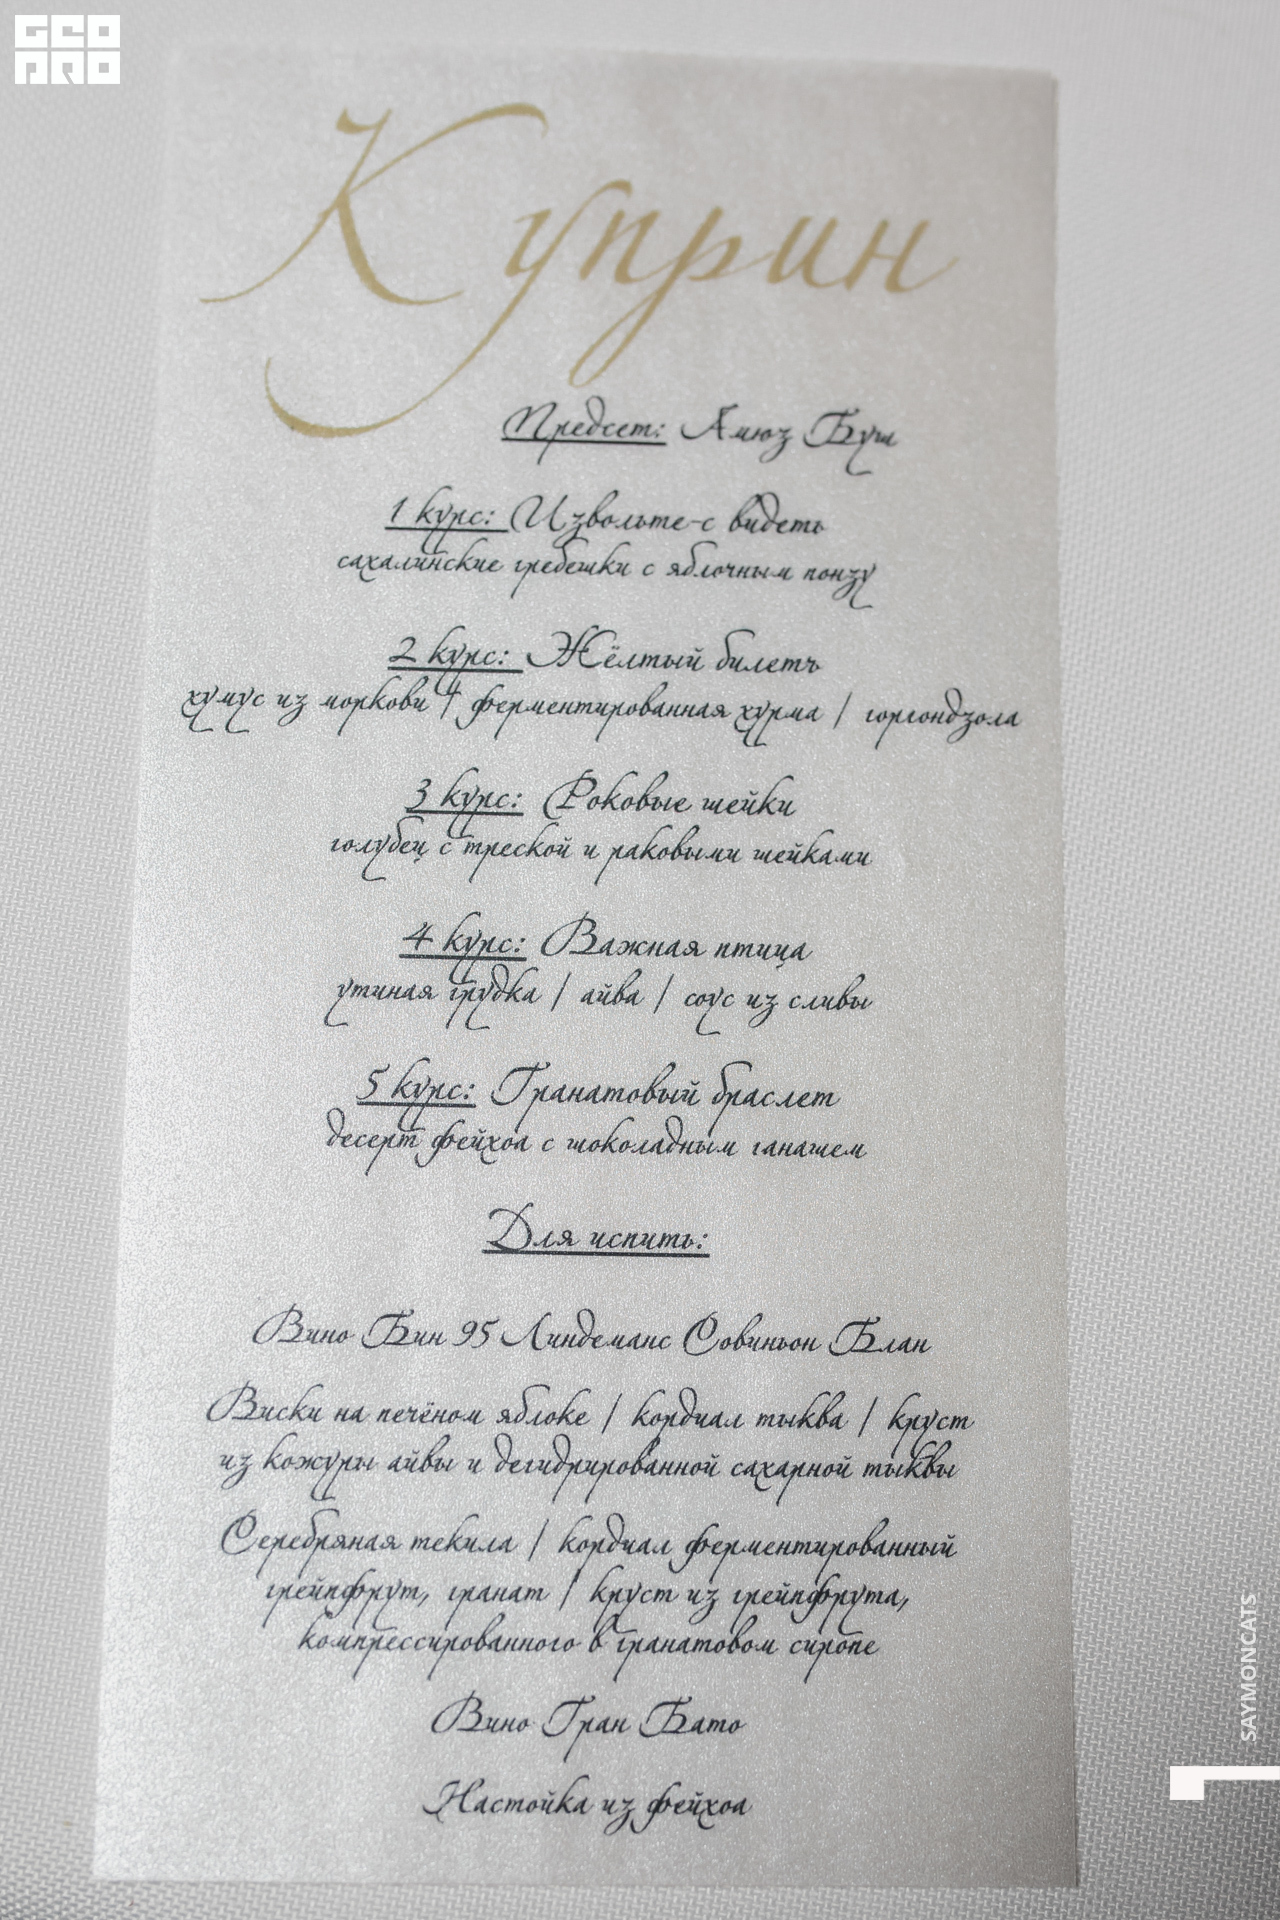 GEO
PRO
Куприн
Предсет: Амюз Буш
1 курс: Извольте-с видеть
сахалинские гребешки с яблочным понзу
2 курс: Жёлтый билетъ
хумус из моркови | ферментированная хурма | горгондзола
3 курс: Роковые шейки
голубец с треской и раковыми шейками
4 курс: Важная птица
утиная грудка | айва | соус из сливы
5 курс: Гранатовый браслет
десерт фейхоа с шоколадным ганашем
Для испить:
Вино Бин 95 Линдеманс Совиньон Блан
Виски на печёном яблоке | кордиал тыква | круст
из кожуры айвы и дегидрированной сахарной тыквы
Серебряная текила | кордиал ферментированный
грейпфрут, гранат | круст из грейпфрута,
компрессированного в гранатовом сиропе
Вино Гран Бато
Настойка из фейхоа
SAYMONCATS